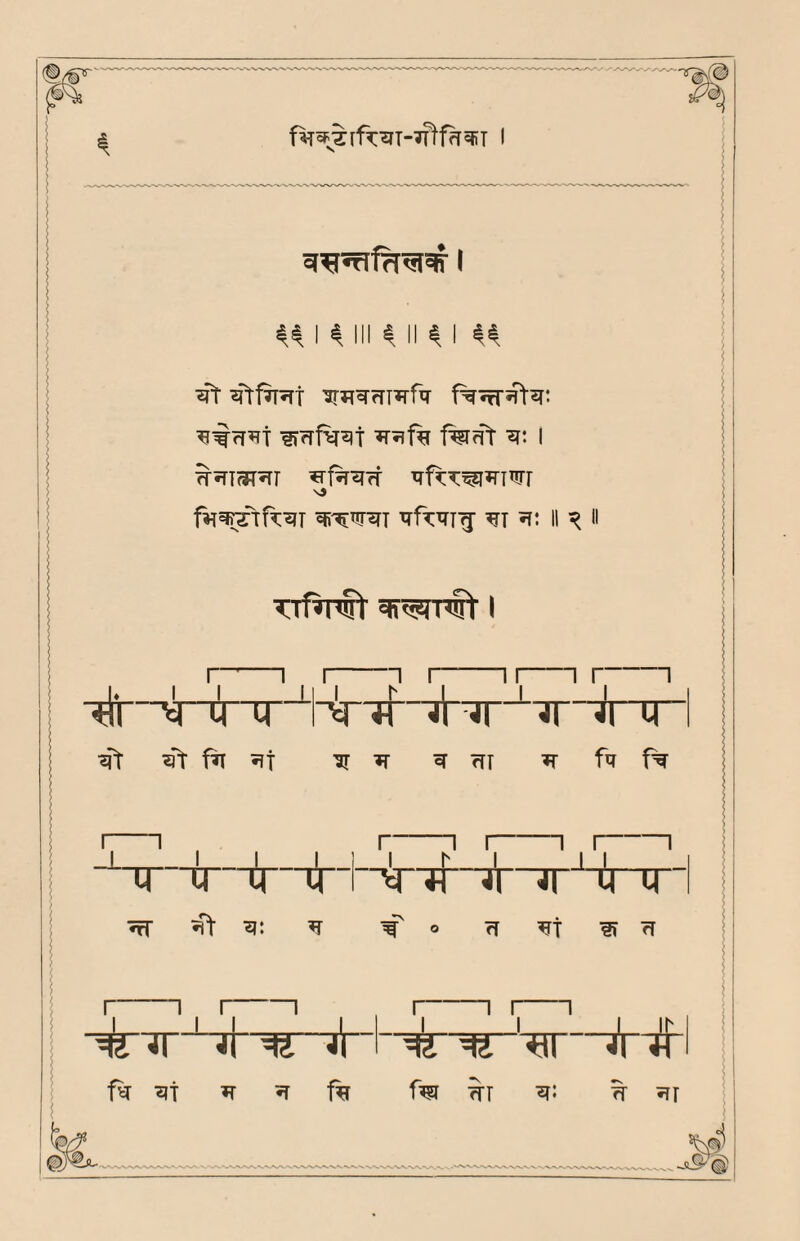 ६ भिक्टोरिया-गीतिका ।
वसन्ततिलकं ।
ऽऽ । ऽ ।।। ऽ ।। ऽ । ऽऽ
यो योगिनां शमवतामपि चिन्तनीयः
सच्चेतसां कृतधियां मनसि स्थितो यः ।
तेनात्मना सुनियतं परिरक्ष्यमाणा
भिक्टोरिया करुणया परिपातु सा नः ॥ २ ॥
रागिणी कल्याणी ।
सा ध प प । ध म ग ग ग ग प ।
यो यो गि नां श म व ता म पि चि
प प प प । ध म ग ग प प ।
न्त नी यः स च्चे ० त सां कृ त
ऋ ग ग ऋ ग । ऋ ऋ सा ग म ।
धि यां म न सि स्थि तो यः ते ना